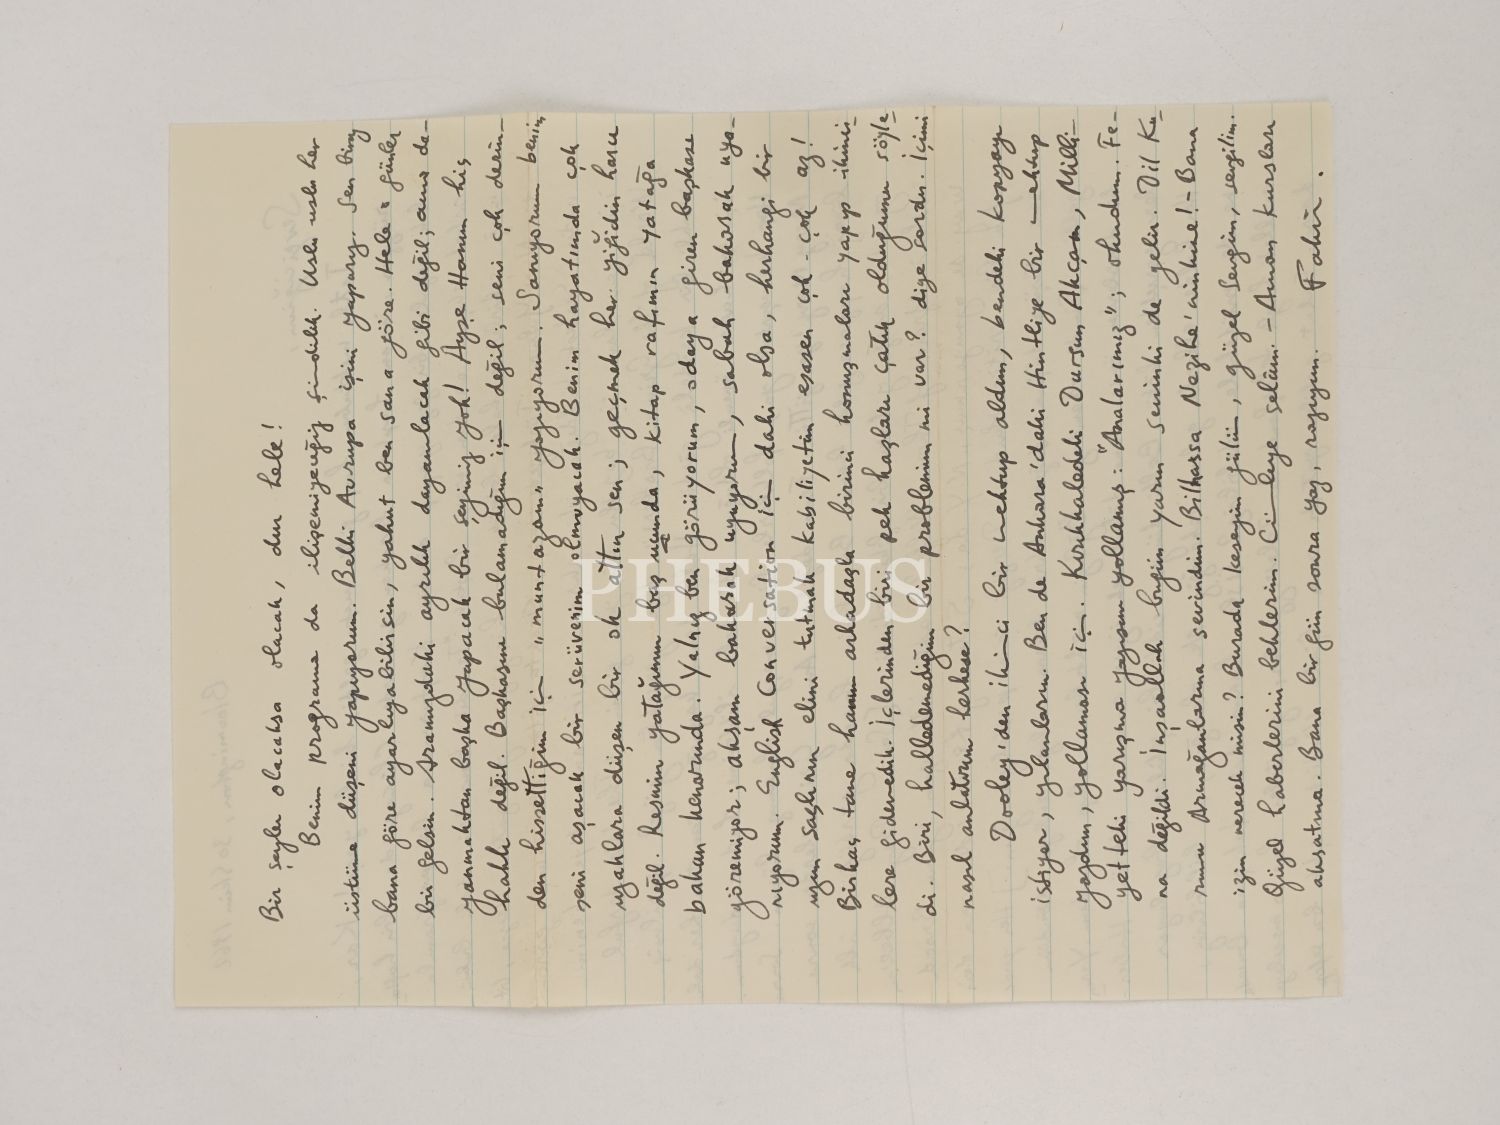 Bir şeyler olacaksa olacak, dur hele!
Benim programa da ilişemiyeceğiz şimdilik. Uslu uslu her
üstüme düşeni yapıyorum. Belki Avrupa işini yaparız. Sen bunu
bana göre ayarlıyabilirsin, yahut ben sana göre. Hele o günler
bir gelsin. Aramızdaki ayrılık dayanılacak gibi değil; ama da-
yanmaktan başka yapacak bir şeyimiz yok! Ayşe Hanım hiç
haklı değil. Başkasını bulamadığım için değil; seni çok derin-
den hissettiğim için "muntazam" yazıyorum. Sanıyorum benim
seni aşacak bir serüvenim olmıyacak. Benim hayatımda çok
uzaklara düşen bir ok attın sen; geçmek her yiğidin harcı
değil. Resmin yatağımın baş ucunda, kitap rafımın yatağa
bakan kenarında. Yalnız ben görüyorum, odaya giren başkası
göremiyor; akşam bakarak uyuyorum, sabah bakarak uya-
nıyorum. English Conversation için dahi olsa, herhangi bir
uzun saçlının elini tutmak kabiliyetim esasen çok - çok az!
Birkaç tane hanım arkadaşla birinci konuşmaları yapıp ikinci-
lere gidemedik. İçlerinden biri pek kaşları çatık olduğumu söyle-
di. Biri, halledemediğim bir problemim mi var? diye sordu. İçimi
nasıl anlatırım herkese?
Dooley'den ikinci bir mektup aldım, bendeki konyayı
istiyor, yıllarım. Ben de Ankara'daki Hintliye bir mektup
yazdım, yollaması için. Kırıkkaledeki Dursun Akçam, Milli-
yetteki yarışma yazısını yollamış: "Analarımız"; okudum. Fe-
na değildi. İnşallah bugün yarın seninki de gelir. Dil Ku-
rumu Armağanlarına sevindim. Bilhassa Nezihe'ninkine! - Bana
izin verecek misin? Burada keseyim gülüm, güzel Sevgim, sevgilim.
Güzel haberlerini beklerim. Cümleye selâm. - Aman kursları
aksatma. Bana bir gün sonra yaz, razıyım. Fakir.
PHEBUS